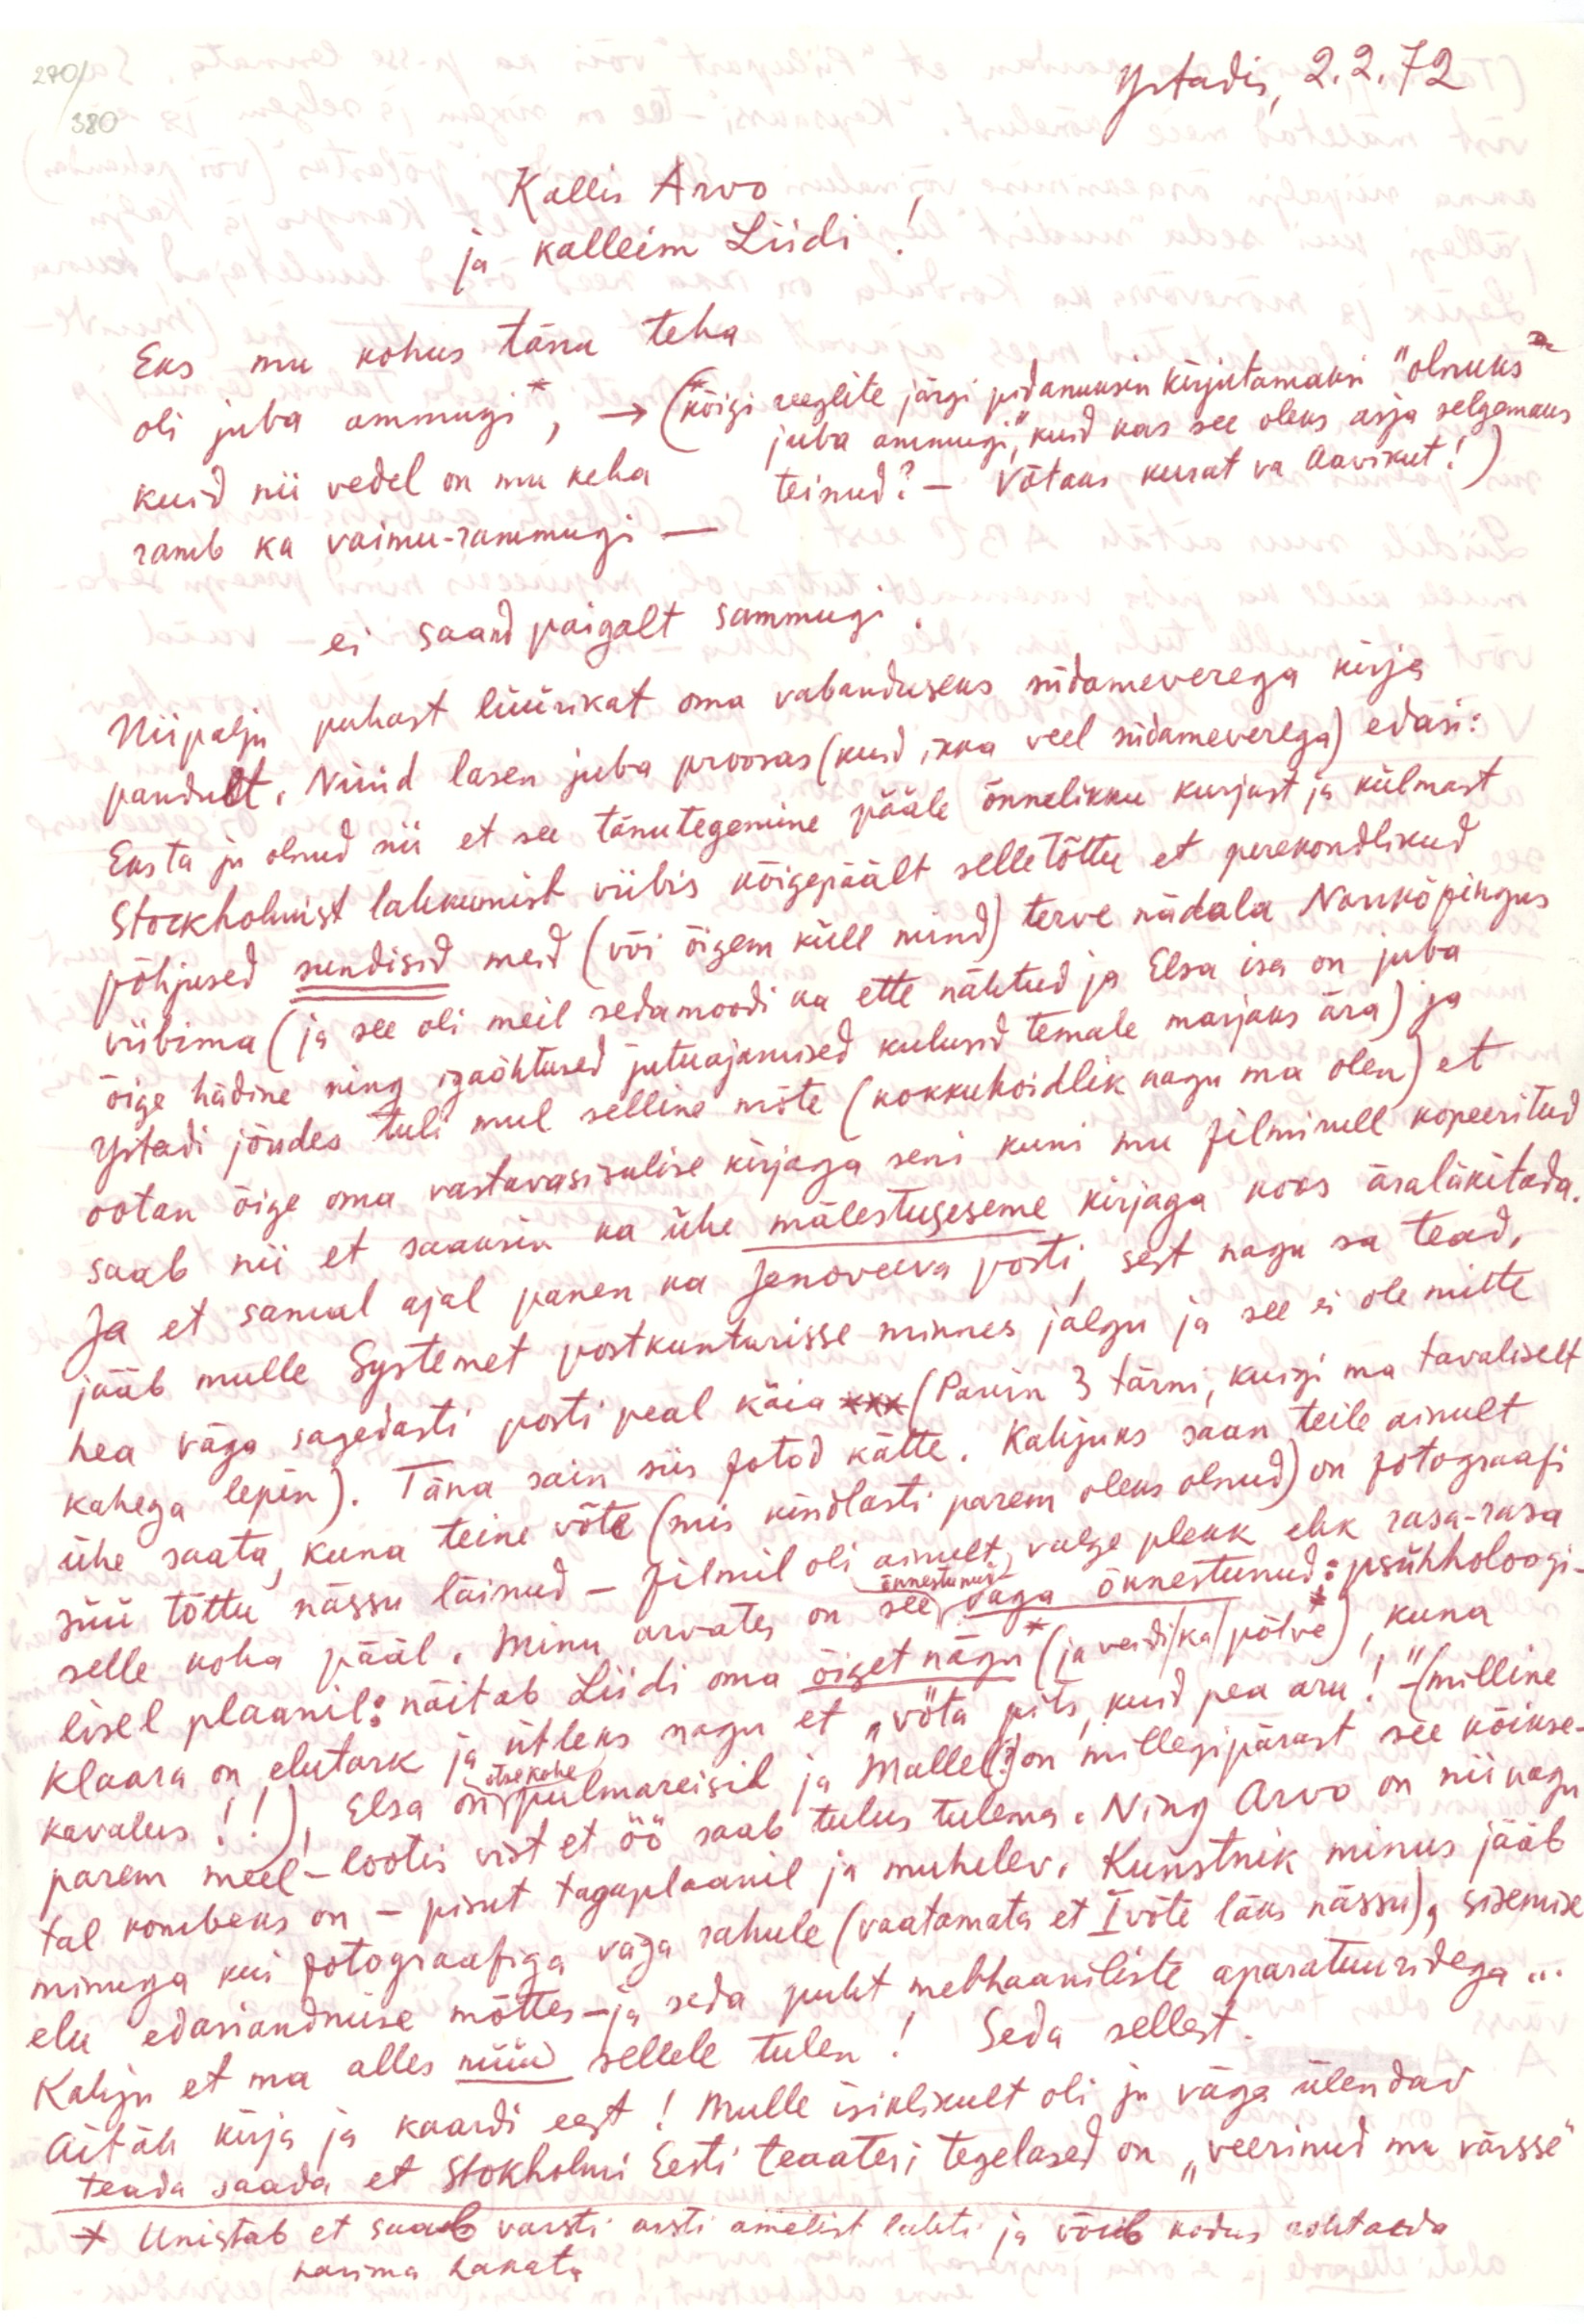 270/
380
Ystadis, 2.2.72
Kallis Arvo
ja kalleim Liidi!
Eks mu kohus tänu teha
oli juba ammugi*, → (*kõigi reeglite järgi pidanuksin kirjutamaksi "olnuks
juba ammugi", kuid kas see oleks asja selgemaks
kuid nii vedel on mu keha
teinud? – Võtaks kurat va Aavikut!)
ramb ka vaimu-rammugi —
ei saand paigalt sammugi.
Niipalju puhast lüürikat oma vabanduseks südameverega kirja
pandult. Nüüd lasen juba proosas (kuid ikka veel südameverega) edasi:
Eks ta ju olnud nii et see tänutegemine pääle õnnelikku kurjast ja külmast
Stockholmist lahkumist viibis kõigepäält selletõttu et perekondlikud
põhjused sundisid meid (või õigem küll mind) terve nädala Norrköpingus
viibima (ja see oli meil sedamoodi ka ette nähtud ja Elsa isa on juba
õige hädine ning igaõhtused jutuajamised kulusid temale marjaks ära) ja
Ystadi jõudes tuli mul selline mõte (kokkuhoidlik nagu ma olen) et
ootan õige oma vastuvasisulise kirjaga seni kuni mu filmirull kopeeritud
saab nii et saaksin ka ühe mälestuseseme kirjaga koos äraläkitada.
Ja et samal ajal panen ka Jenoveeva posti, sest nagu sa tead,
jääb mulle Systemet postkunturisse minnes jalgu ja see ei ole mitte
hea väga sagedasti posti peal käia *** (Panin 3 tärni, kuigi ma tavaliselt
kahega lepin). Täna sain siis fotod kätte. Kahjuks saan teile ainult
ühe saata, kuna teine võte (mis kindlasti parem oleks olnud) on fotograafi
süü tõttu nässu läinud – filmil oli ainult valge plekk ehk rasa-rasa
selle koha pääl. Minu arvates on see õnnestunud väga õnnestunud: psühholoogi-
lisel plaanil: näitab Liidi oma õiget nägu* (ja veidi/ka/põlve*), kuna
Klaara on elutark ja ütleks nagu et "võta pits, kuid pea aru!" – (milline
kavalus!!), Elsa on otsekohe pulmareisil ja Mallel(?) on millegipärast see kõikse-
parem meel – lootis vist et öö saab tulus tulema. Ning Arvo on nii nagu
tal kombeks on, – pisut tagaplaanil ja muhelev. Kunstnik minus jääb
minuga kui fotograafiga väga rahule (vaatamata et I võte läks nässu), sisemise
elu edasiandmise mõttes – ja seda puht mehhaaniliste aparatuuridega...
Kahju et ma alles nüüd sellele tulen! Seda sellest.
Aitäh kirja ja kaardi eest! Mulle isiklikult oli ju väga ülendav
teada saada et Stokholmi Eesti teaatri tegelased on "veerinud mu värsse"
* Unistab et saab varsti arsti ametist lahti ja võib kodus rohtaeda
harima hakata